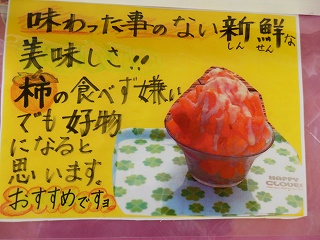 味わった事のない新鮮な
しん せん
美味しさ!!
柿の食べず嫌い
でも好物
になると
思います。
おすすめですヨ
HAPPY
CLOVER